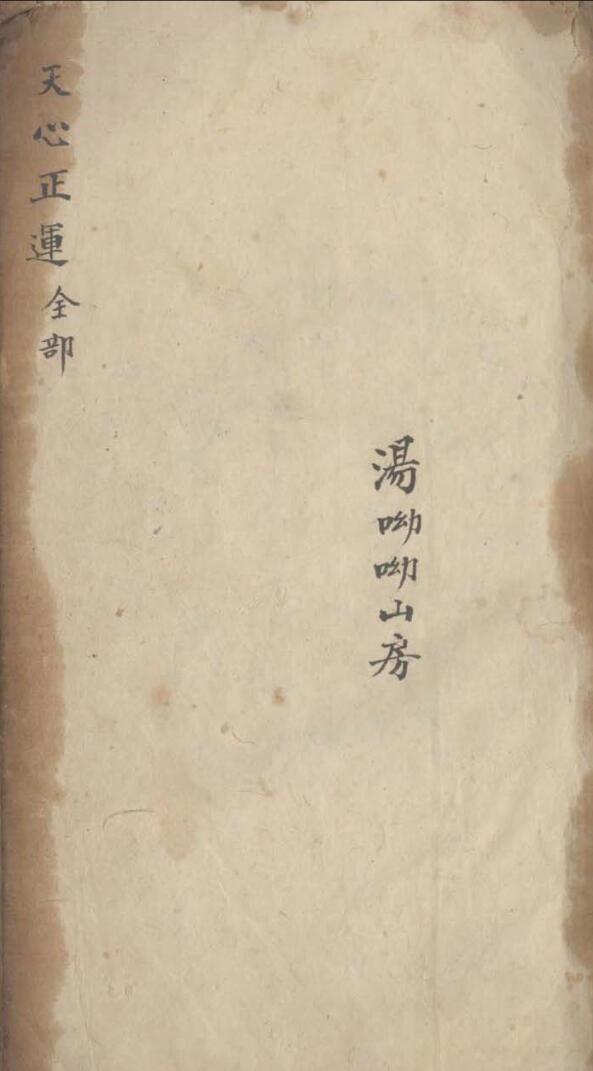 天心正運全部
湯呦呦山房